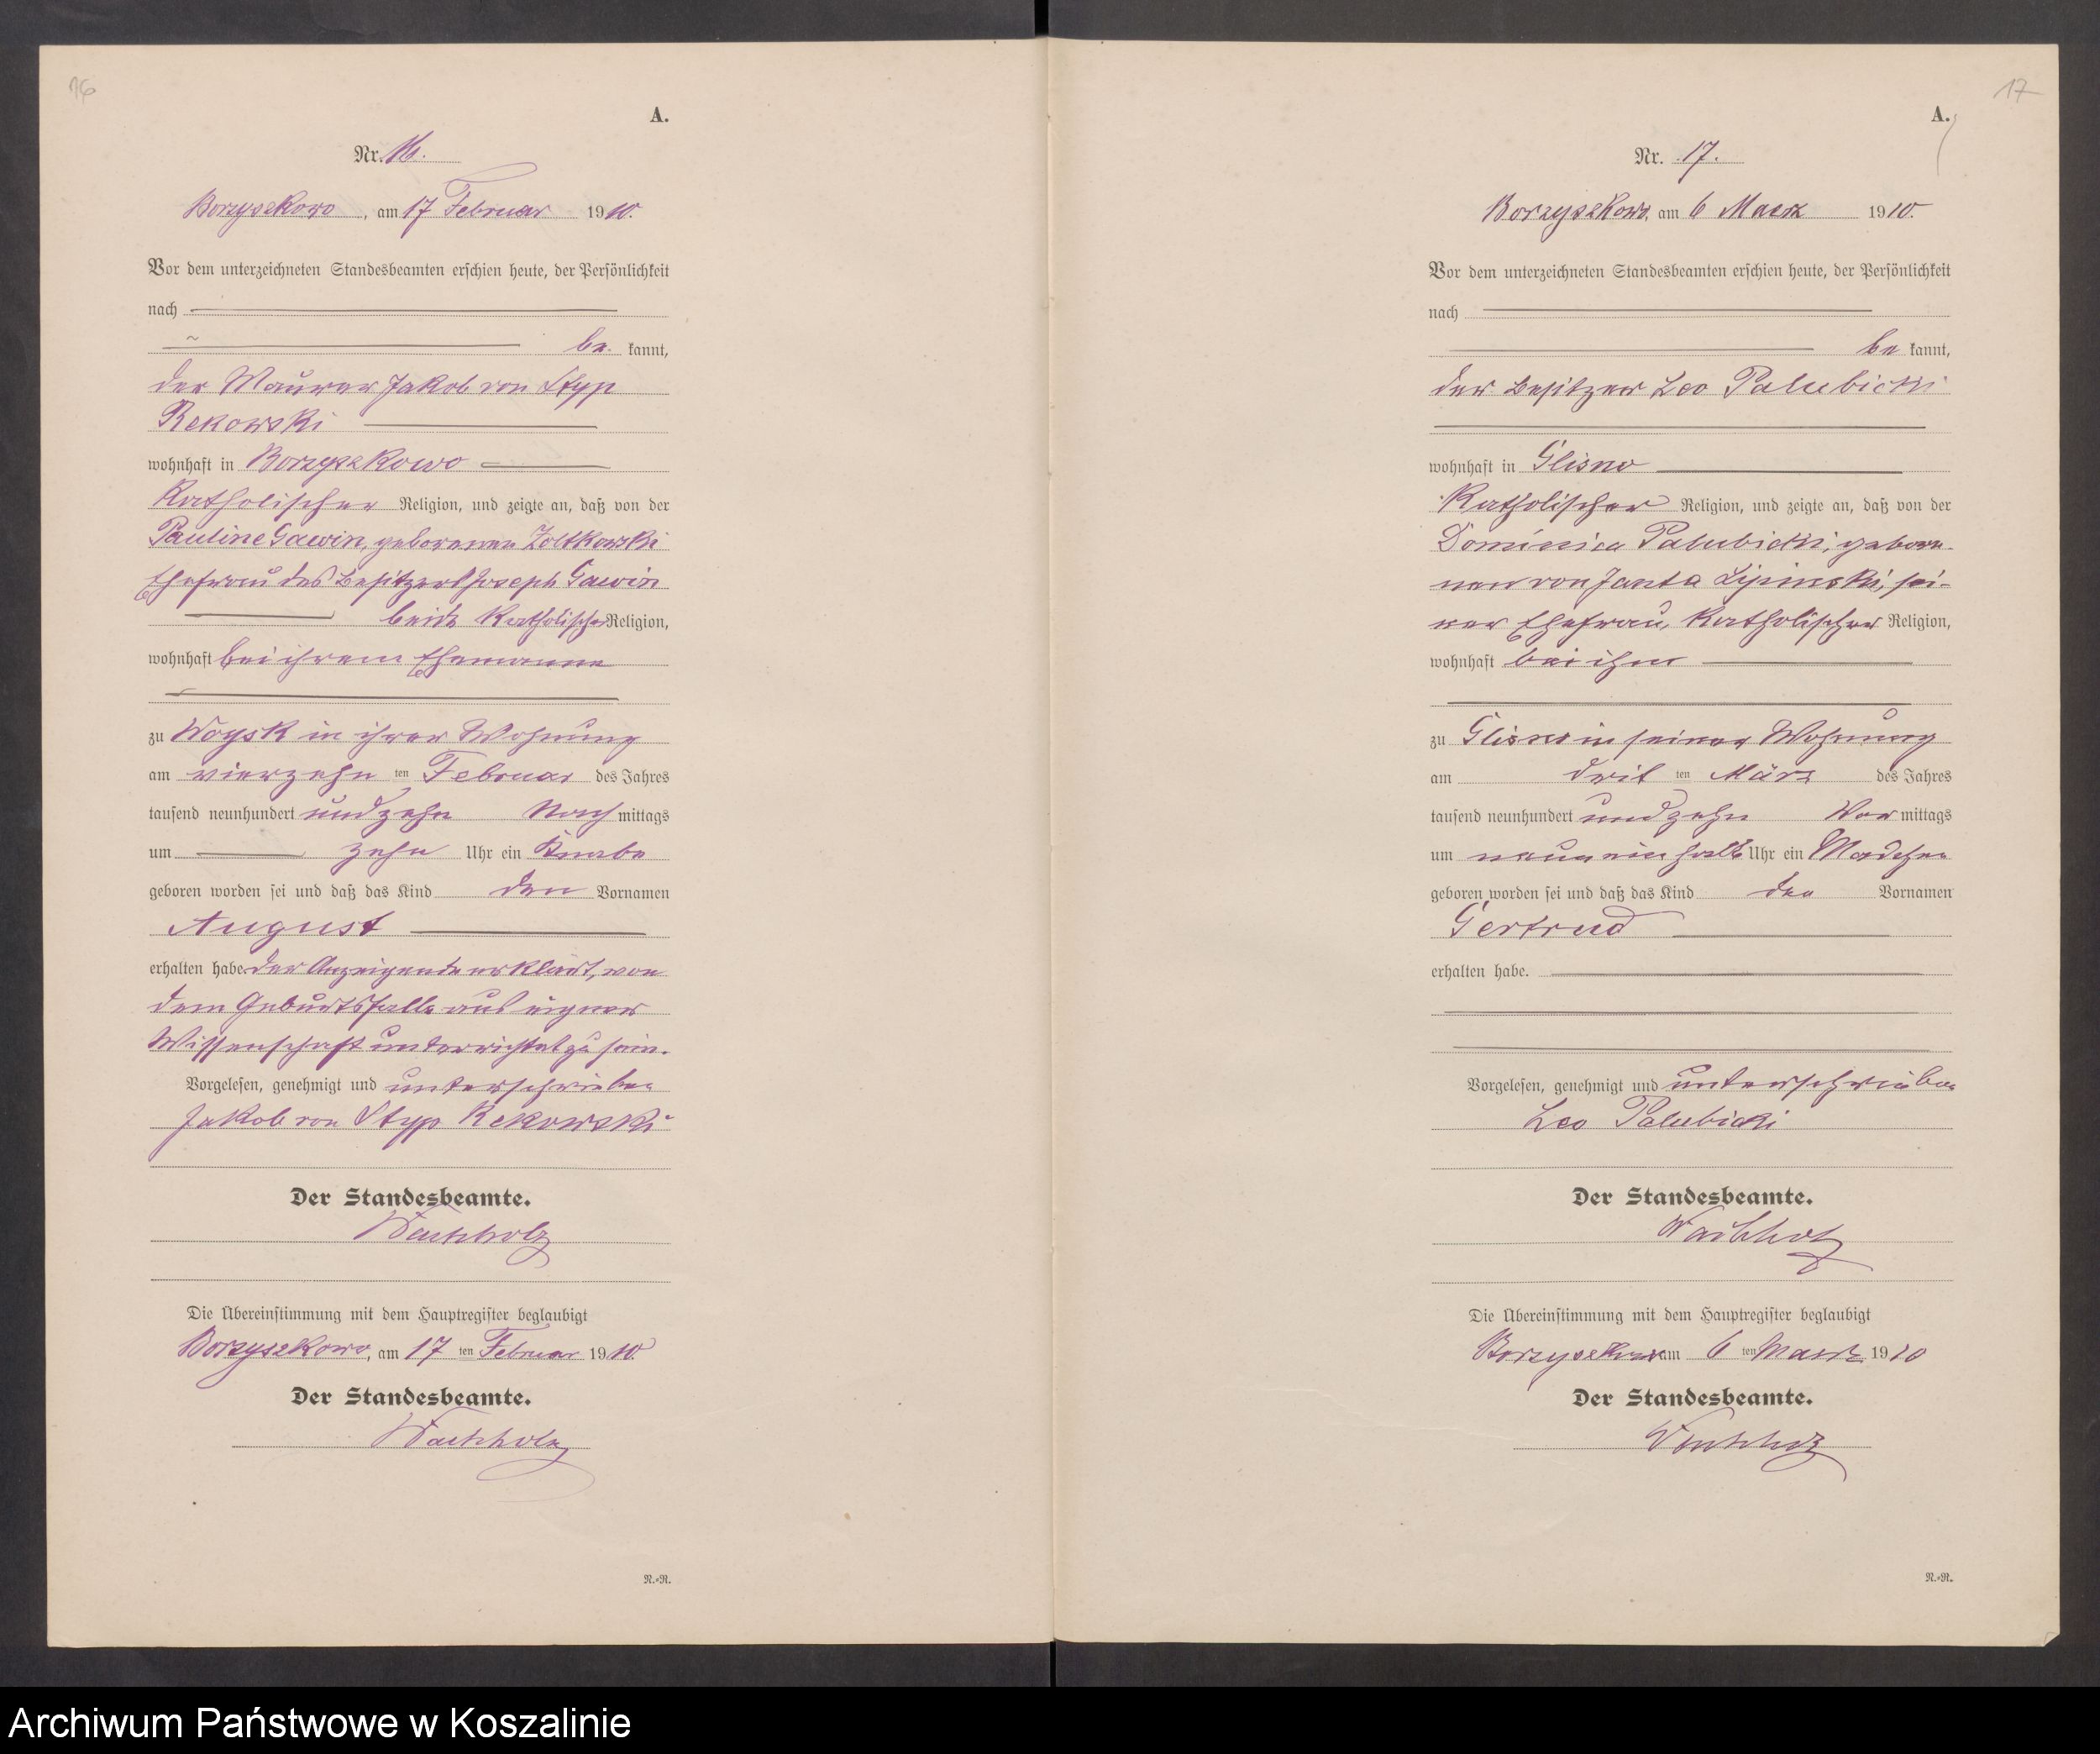 16
A.
Nr. 16.
Borzyszkowo, am 17 Februar 1910.
Vor dem unterzeichneten Standesbeamten erschien heute, der Persönlichkeit
nach
be kannt,
der Maurer Jakob von Styp
Rekowski
wohnhaft in Borzyszkowo
katholischer Religion, und zeigte an, daß von der
Pauline Gawin, geborenen Zoltkowski
Ehefrau des Besitzers Joseph Gawin
beide katholischer Religion,
wohnhaft bei ihrem Ehemanne
zu Woysk in ihrer Wohnung
am vierzehn ten Februar des Jahres
tausend neunhundert und zehn Nach mittags
um zehn Uhr ein Knabe
geboren worden sei und daß das Kind den Vornamen
August
erhalten habe. der Anzeigende erklärt, von
dem Geburtsfalle aus eigner
Wissenschaft unterrichtet zu sein.
Vorgelesen, genehmigt und unterschrieben
Jakob von Styp Rekowski
Der Standesbeamte.
Wachholz
Die Übereinstimmung mit dem Hauptregister beglaubigt
Borzyszkowo, am 17 ten Februar 1910.
Der Standesbeamte.
Wachholz
N.=R.
17
A.
Nr. 17.
Borzyszkowo, am 6 Maerz 1910.
Vor dem unterzeichneten Standesbeamten erschien heute, der Persönlichkeit
nach
be kannt,
der Besitzer Leo Palubicki
wohnhaft in Glisno
katholischer Religion, und zeigte an, daß von der
Dominica Palubicki, gebore-
nen von Janta Lipinski, sei-
ner Ehefrau, katholischer Religion,
wohnhaft bei ihm
zu Glisno in seiner Wohnung
am drit ten März des Jahres
tausend neunhundert und zehn Vor mittags
um neun ein halb Uhr ein Mädchen
geboren worden sei und daß das Kind den Vornamen
Gertrud
erhalten habe.
Vorgelesen, genehmigt und unterschrieben
Leo Palubicki
Der Standesbeamte.
Wachholz
Die Übereinstimmung mit dem Hauptregister beglaubigt
Borzyszkowo am 6 ten Maerz 1910
Der Standesbeamte.
Wachholz
N.=R.
Archiwum Państwowe w Koszalinie